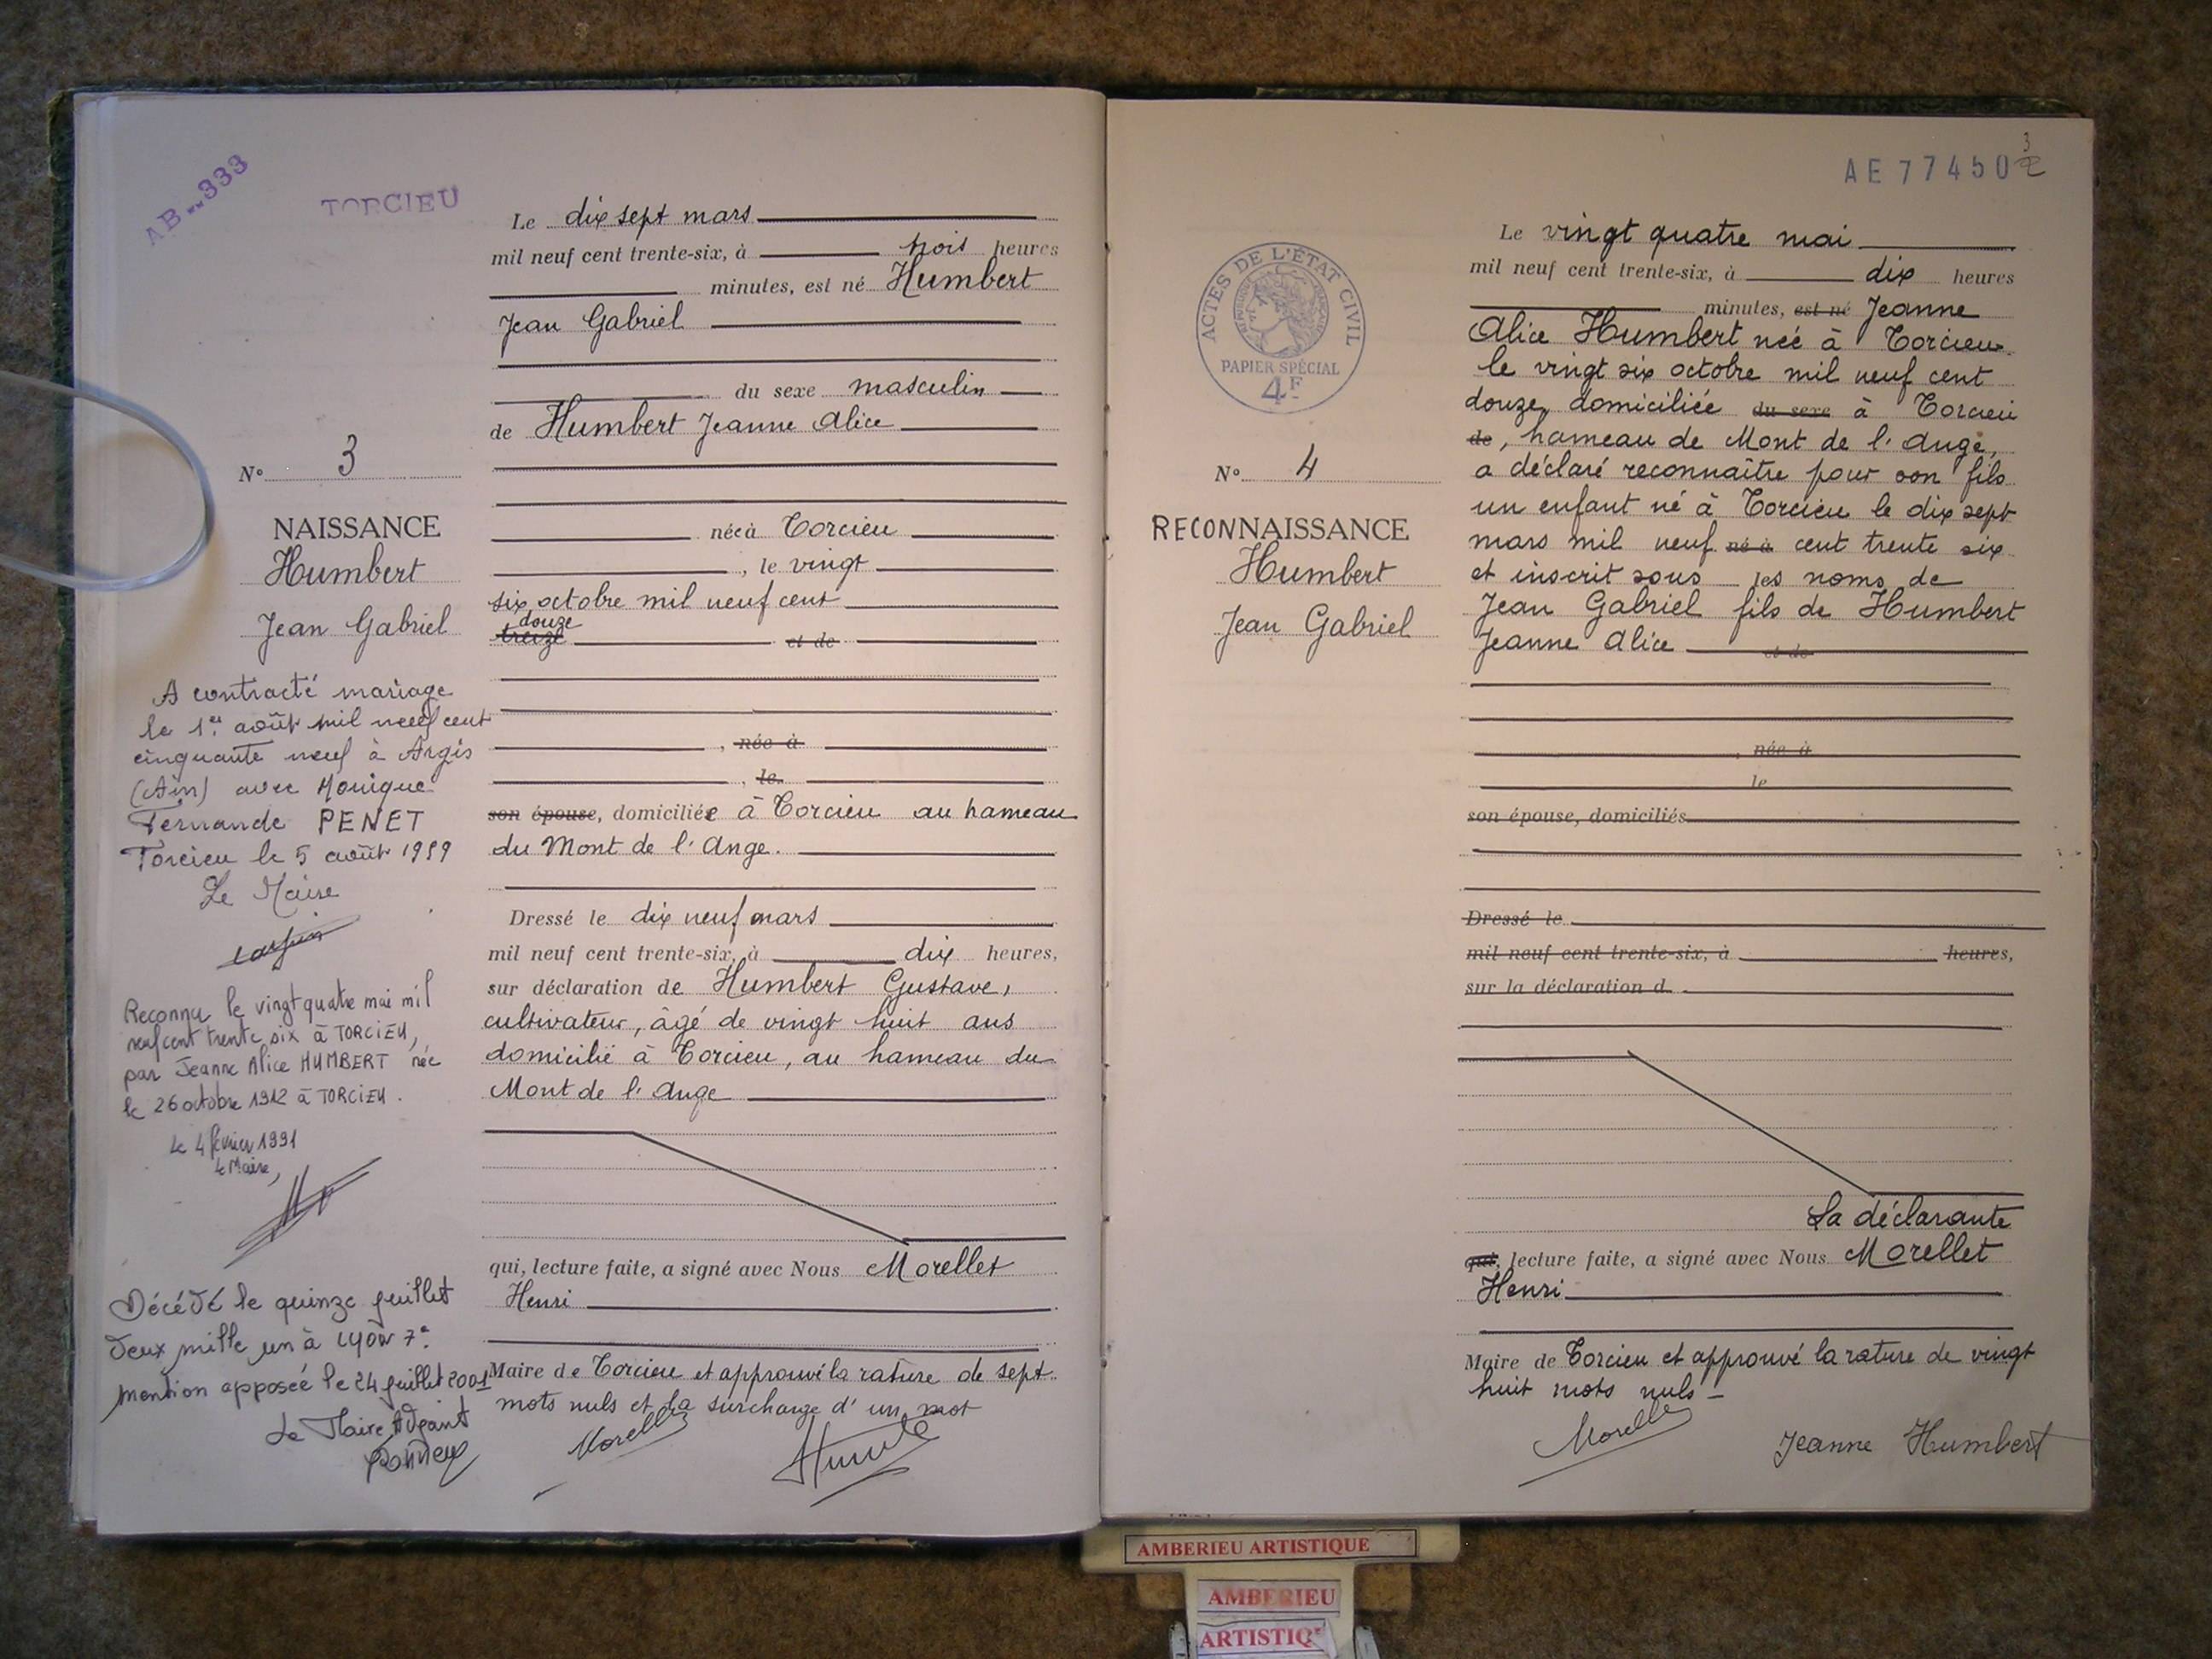 AB..333
TORCIEU
Le dix sept mars
mil neuf cent trente-six, à trois heures
minutes, est né Humbert
Jean Gabriel
du sexe masculin
de Humbert Jeanne Alice
N° 3
NAISSANCE
Humbert
Jean Gabriel
née à Torcieu
, le vingt
six octobre mil neuf cent
douze
treize et de
, née à
, le
son épouse, domiciliée à Torcieu au hameau
du Mont de l'Ange.
Dressé le dix neuf mars
mil neuf cent trente-six, à dix heures,
sur déclaration de Humbert Gustave,
cultivateur, âgé de vingt huit ans
domicilié à Torcieu, au hameau du
Mont de l'Ange
qui, lecture faite, a signé avec Nous Morellet
Henri
Maire de Torcieu et approuvé la rature de sept
mots nuls et la surcharge d'un mot
Morellet
A contracté mariage
le 1er août mil neuf cent
cinquante neuf à Argis
(Ain) avec Monique
Fernande PENET
Torcieu le 5 août 1959
Le Maire
Reconnu le vingt quatre mai mil
neuf cent trente six à TORCIEU,
par Jeanne Alice HUMBERT née
le 26 octobre 1912 à TORCIEU.
Le 4 février 1991
Le Maire,
Décédé le quinze juillet
deux mille un à LYON 7e.
mention apposée le 24 juillet 2001
Le Maire Adjoint
AE 77450
3
2
ACTES DE L'ÉTAT CIVIL
PAPIER SPÉCIAL
4F
Le vingt quatre mai
mil neuf cent trente-six, à dix heures
minutes, est né Jeanne
Alice Humbert née à Torcieu
le vingt six octobre mil neuf cent
douze, domiciliée du sexe à Torcieu
de, hameau de Mont de l'Ange,
a déclaré reconnaître pour son fils
un enfant né à Torcieu le dix sept
mars mil neuf né à cent trente six
et inscrit sous les noms de
Jean Gabriel fils de Humbert
Jeanne Alice et de
N° 4
RECONNAISSANCE
Humbert
Jean Gabriel
, née à
le
son épouse, domiciliés
Dressé le
mil neuf cent trente-six, à heures,
sur la déclaration d
La déclarante
qui, lecture faite, a signé avec Nous Morellet
Henri
Maire de Torcieu et approuvé la rature de vingt
huit mots nuls
Morellet
Jeanne Humbert
AMBERIEU ARTISTIQUE
AMBERIEU
ARTISTIQ